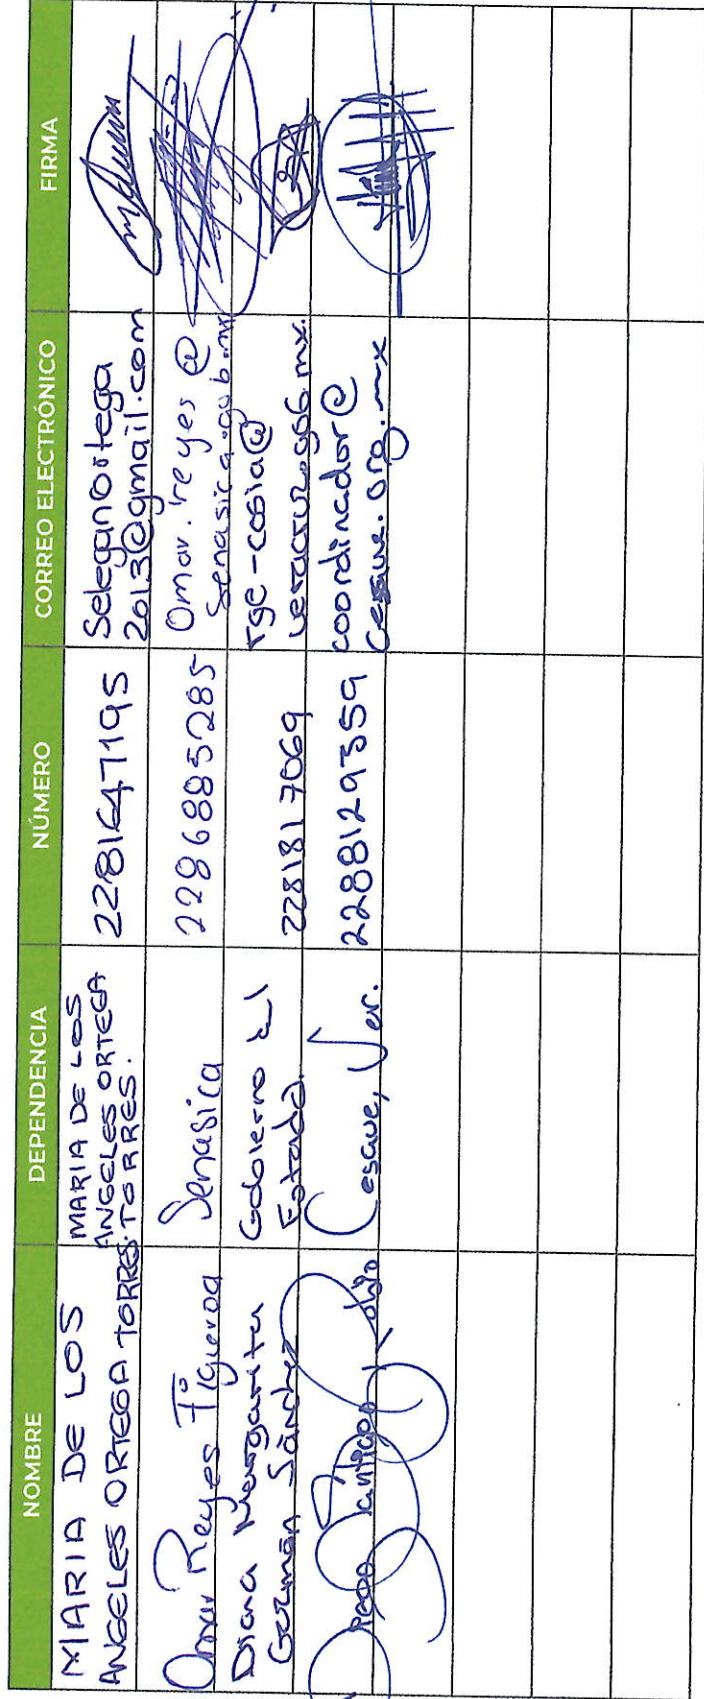 NOMBRE DEPENDENCIA NÚMERO CORREO ELECTRÓNICO FIRMA
MARIA DE LOS
ANGELES ORTEGA TORRES.
MARIA DE LOS
ANGELES ORTEGA
TORRES.
2281647195
Seleganortega
2013@gmail.com
Omar Reyes Figueroa
Senasica
2296885285
Omar.reyes@
senasica.gob.mx
Diana Margarita
Guzmán Sánchez
Gobierno del
Estado.
2281817069
rge-cosia@
veracruz.gob.mx.
Santiago
Cesave, Ver.
2288129359
coordinador@
cesave.org.mx